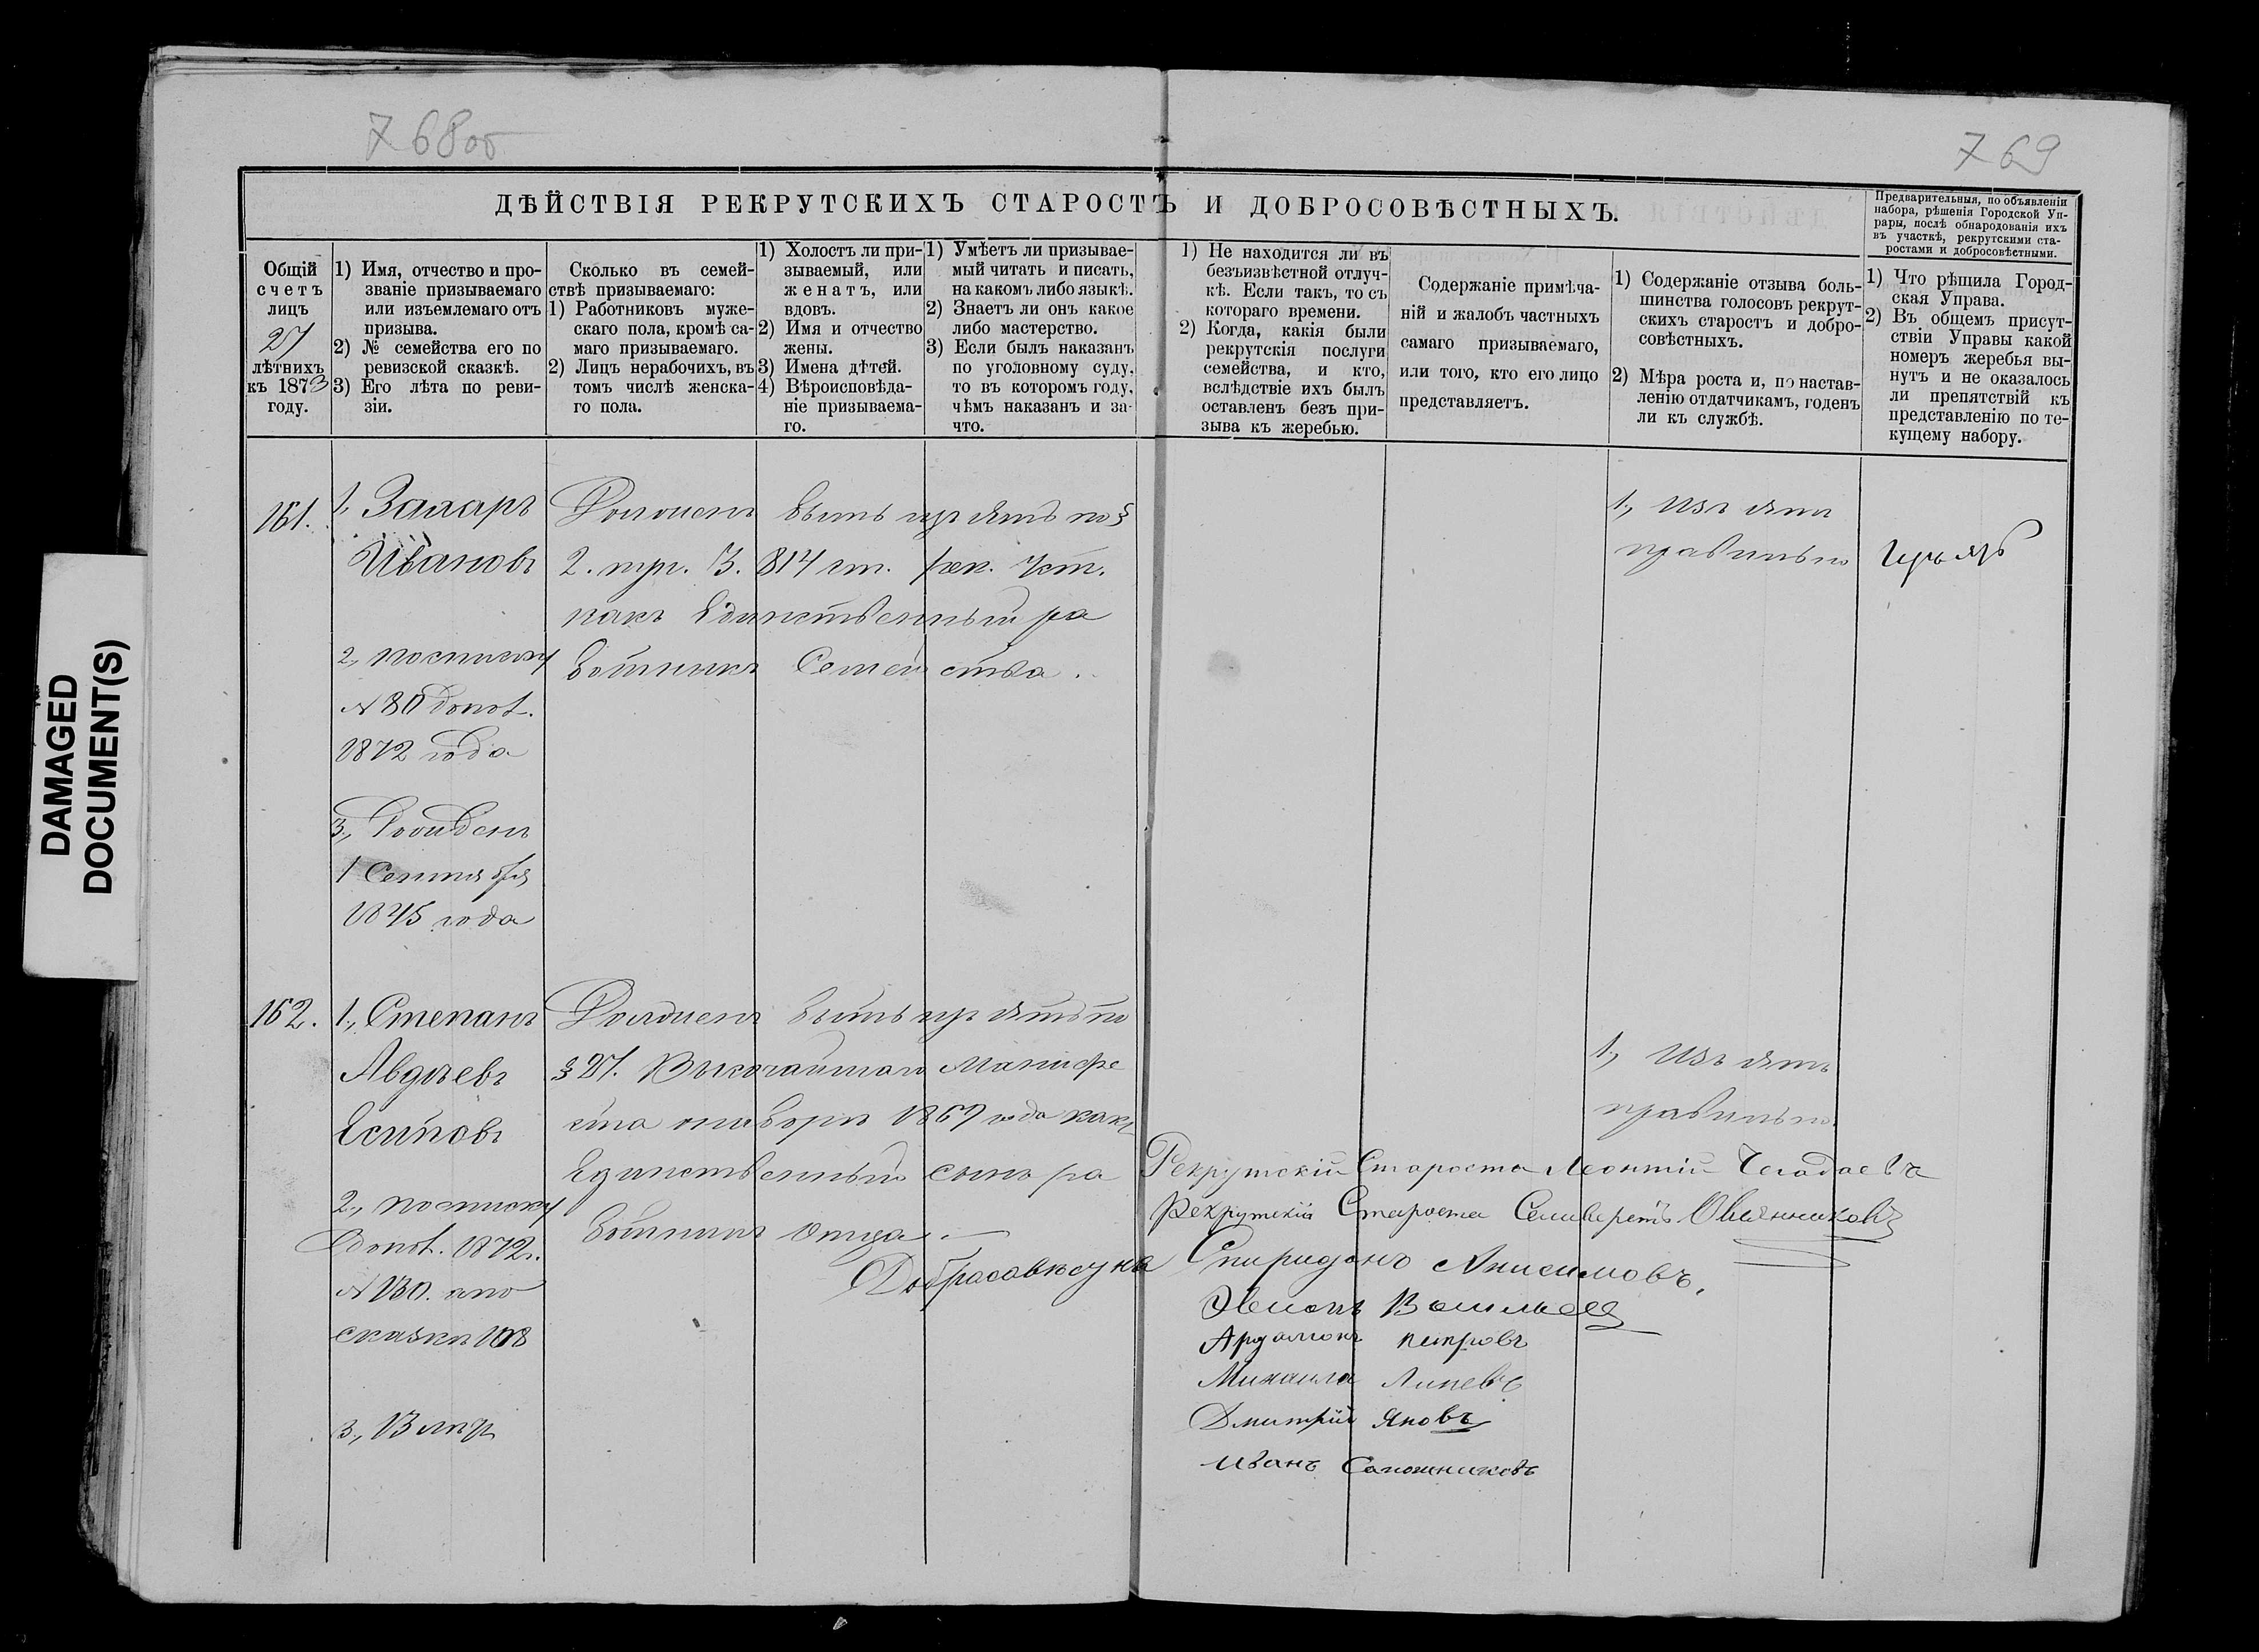 768об
769
DAMAGED
DOCUMENT(S)
ДѢЙСТВІЯ РЕКРУТСКИХЪ СТАРОСТЪ И ДОБРОСОВѢСТНЫХЪ.
Предварительныя, по объявленіи
набора, рѣшенія Городской Уп-
равы, послѣ обнародованія ихъ
въ участкѣ, рекрутскими ста-
ростами и добросовѣстными.
Общій
счетъ
лицъ
27
лѣтнихъ
къ 1873
году.
1) Имя, отчество и про-
званіе призываемаго
или изъемлемаго отъ
призыва.
2) № семейства его по
ревизской сказкѣ.
3) Его лѣта по реви-
зіи.
Сколько въ семей-
ствѣ призываемаго:
1) Работниковъ муже-
скаго пола, кромѣ са-
маго призываемаго.
2) Лицъ нерабочихъ, въ
томъ числѣ женска-
го пола.
1) Холостъ ли при-
зываемый, или
женатъ, или
вдовъ.
2) Имя и отчество
жены.
3) Имена дѣтей.
4) Вѣроисповѣда-
ніе призываема-
го.
1) Умѣетъ ли призывае-
мый читать и писать,
на какомъ либо языкѣ.
2) Знаетъ ли онъ какое
либо мастерство.
3) Если былъ наказанъ
по уголовному суду,
то въ которомъ году,
чѣмъ наказанъ и за-
что.
1) Не находится ли въ
безъизвѣстной отлуч-
кѣ. Если такъ, то съ
котораго времени.
2) Когда, какія были
рекрутскія послуги
семейства, и кто,
вслѣдствіе ихъ былъ
оставленъ безъ при-
зыва къ жеребью.
Содержаніе примѣча-
ній и жалобъ частныхъ
самаго призываемаго,
или того, кто его лицо
представляетъ.
1) Содержаніе отзыва боль-
шинства голосовъ рекрут-
скихъ старостъ и добро-
совѣстныхъ.
2) Мѣра роста и, по настав-
ленію отдатчикамъ, годенъ
ли къ службѣ.
1) Что рѣшила Город-
ская Управа.
2) Въ общемъ присут-
ствіи Управы какой
номеръ жеребья вы-
нутъ и не оказалось
ли препятствій къ
представленію по те-
кущему набору.
161.
1, Захаръ
Ивановъ
2, по списку
№ 80 допол.
1872 года
3, Рожденъ
1 Сентября
1845 года
Долженъ быть изъятъ по §
2. пр. 3. 814 ст. рек. уст.
какъ Единственный ра
ботникъ Семейства.
1, Изъятъ
правильно
Изъятъ
162.
1, Степанъ
Авдѣевъ
Есиповъ
2, по списку
допол. 1872 г.
№ 130. а по
сказкѣ 108
3, 13 лѣтъ
Долженъ быть изъятъ по
§ 27. Высочайшаго Манифе
ста о наборѣ 1867 года какъ
Единственный сынъ ра
ботника Отца.
1, Изъятъ
правильно.
Рекрутскій Староста Леонтій Чегадаевъ
Рекрутскій Староста Селиверстъ Овчинниковъ
Добрасавѣсуна Спиридонъ Анисимовъ,
Васильевъ
Ардамонъ петровъ
Михаила Липевъ
Дмитрій Яновъ
Иванъ Сапожниковъ